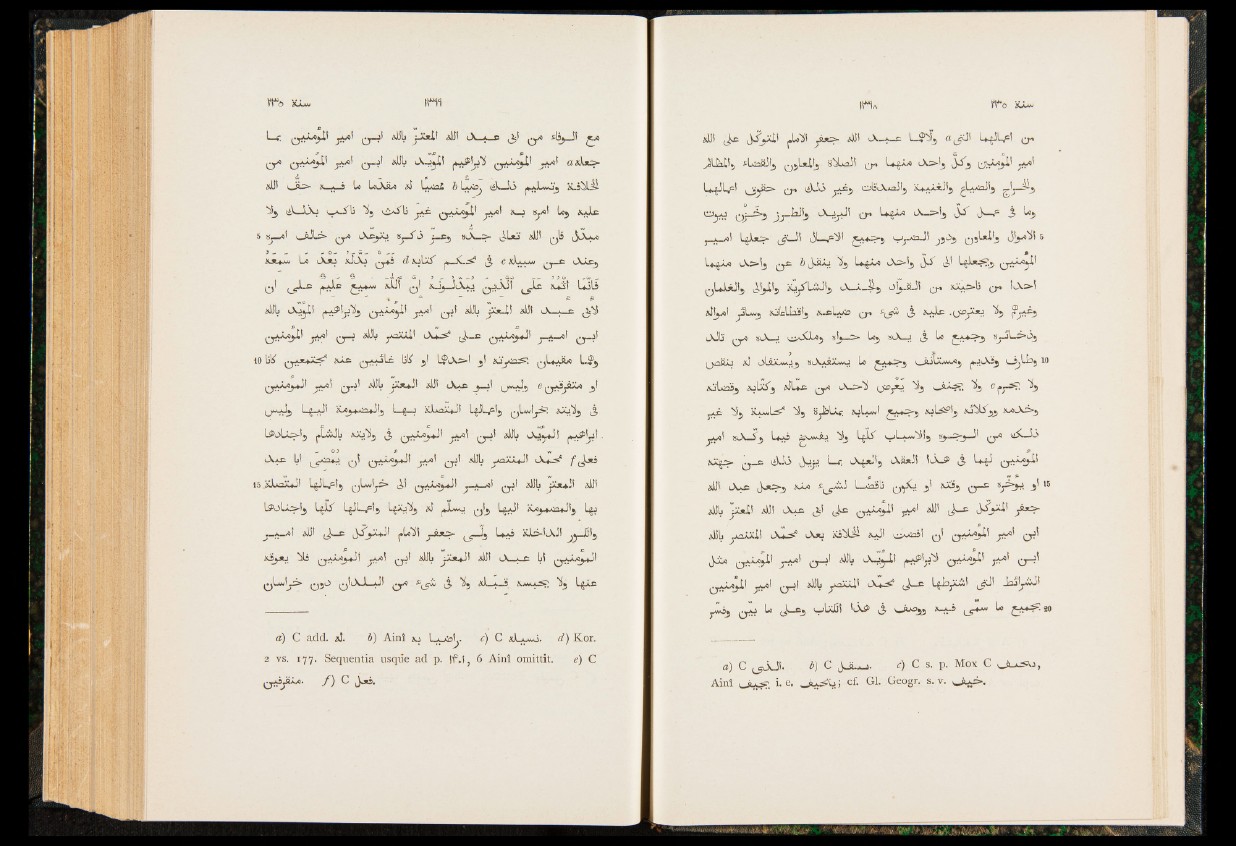 سنة ٢٣٥ ١٣٩٨
من اعمالها التى a ولاهما عبد الله جعفر الامام المتوكل على الله
امير المؤمنين وكلّ واحد منهما من الصلاة والمعاون والقضاء والمظالم
والخراج والضياع والغنيمة والصدقات وغير ذلك من حقوق اعمالها
وما فى عمل كلّ واحد منهما من البريد والطرز وخزن بيوت
الاموال والمعاون ودور الضرب وجميع الاعمال التى جعلها امير 5
المؤمنين ويجعلها الى كلّ واحد منهما ولا ينقل b عن واحد منهما
احدا من ناحيته من القوّاد والجند والشاكريّة والموالى والغلمان
وغيرهم ولا يعترض عليه فى شىء من ضياعه واقطاعاته وسائر امواله
وذخائره وجميع ما فى يده وما حواه وملكت يده من تالد
وطارف وقديم ومستأنف وجميع ما يستفيده ويستفاد له بنقص 10
ولا يحرم c ولا يجنف ولا يعرض لاحد من عمّاله وكتّابه وقضاته
وخدمه ووكلائه واصحابه وجميع اسبابه بمناظرة ولا محاسبة ولا غير
ذلك من الوجوه والاسباب كلّها ولا يفسخ فيما وكّده امير
المؤمنين لهما فى هذا العقد والعهد بما يزيل ذلك عن جهته
او يؤخّره عن وقته او يكون ناقضا لشىء منه وجعل عبد الله 15
جعفر المتوكل على الله امير المؤمنين على ابى عبد الله المعتزّ بالله
ابن امير المؤمنين ان افضت اليه الخلافة بعد محمّد المنتصر بالله
ابن امير المؤمنين لابراهيم المؤيّد بالله ابن امير المؤمنين مثل
الشرائط التى اشترطها على محمّد المنتصر بالله ابن امير المؤمنين
بجميع ما سمّى فيه ووصف فى هذا الكتاب وعلى ما بيّن وفسّر 20
a) C الذى. b) C c) C s. p. Mox C
Ainî i. e. cf. Gl. Geogr. s. v. خيف.
سنة ٢٣٥ ١٣٩٩
مع الوفاء من ابى عبد الله المعتزّ بالله ابن امير المؤمنين بما
جعله a امير المؤمنين لابراهيم المؤيّد بالله ابن امير المؤمنين من
الخلافة وتسليم ذلك راضيا b ممضيا له مقدّما ما فيه حقّ الله
عليه وما امره به امير المؤمنين غير ناكث ولا ناكب بذلك ولا
مبدّل فان الله تعالى جدّه وعزّ ذكره يتوعّد من خالف امره 5
وعند عن سبيله c فى محكم كتابه d فَمَنْ بَدَّلَهُ بَعْدَ مَا سَمِعَهُ
فَإِنَّمَا إِثْمُهُ عَلَى ٱلَّذِينَ يُبَدِّلُونَهُ إِنَّ ٱللَّهَ سَمِيعٌ عَلِيمٌ على ان
لابى عبد الله المعتزّ بالله ابن امير المؤمنين ولابراهيم المؤيّد بالله
ابن امير المؤمنين على محمّد المنتصر بالله بن امير المؤمنين
وهما مقيمان بحضرته او احدهما او كانا غائبين عنه مجتمعين كانا 10
او متفرقين e وليس ابو عبد الله المعتزّ بالله ابن امير المؤمنين
فى ولايته بخراسان واعمالها المتّصلة بها والمضمومة اليها وليس
ابراهيم المؤيّد بالله ابن امير المؤمنين فى ولايته بالشأم واجنادها
فعلى f محمّد المنتصر بالله ابن امير المؤمنين ان يُمْضى ابا عبد
الله المعتزّ بالله ابن امير المؤمنين الى خراسان واعمالها المتّصلة 15
بها والمضمومة اليها وان يسلّم له ولايتها واعمالها كلّها واجنادها
والكور الداخلة فيما ولّى جعفر الامام المتوكل على الله امير
المؤمنين ابا عبد الله المعتزّ بالله ابن امير المؤمنين فلا يعوقه
عنها ولا يحبسه قبله ولا فى شىء من البلدان دون خراسان
a) C add. له. b) Ainî راضيا به. c) C d) Kor.
2 vs. 177. Sequentia usque ad p. ١٤٠١, 6 Ainî omittit. e) C
f) C فعل.